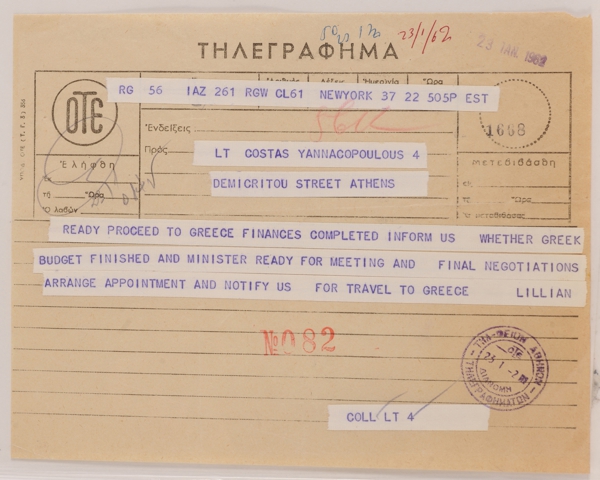 23/1/62
23 JAN. 1962
ΤΗΛΕΓΡΑΦΗΜΑ
RG 56 IAZ 261 RGW CL61 NEWYORK 37 22 505P EST
ΟΤΕ
1668
Ἐνδείξεις
Πρός
LT COSTAS YANNACOPOULOUS 4
DEMICRITOU STREET ATHENS
Ἐλήφθη
Ἐκ
τῇ Ὥρα
Ὁ λαβών
μετεδιβάσθη
τῇ Ὥρα
Ὁ μεταδιβάσας
READY PROCEED TO GREECE FINANCES COMPLETED INFORM US WHETHER GREEK
BUDGET FINISHED AND MINISTER READY FOR MEETING AND FINAL NEGOTIATIONS
ARRANGE APPOINTMENT AND NOTIFY US FOR TRAVEL TO GREECE LILLIAN
№082
ΟΤΕ
ΔΙΑΝΟΜΗ
ΤΗΛΕΓΡΑΦΗΜΑΤΩΝ
COLL LT 4